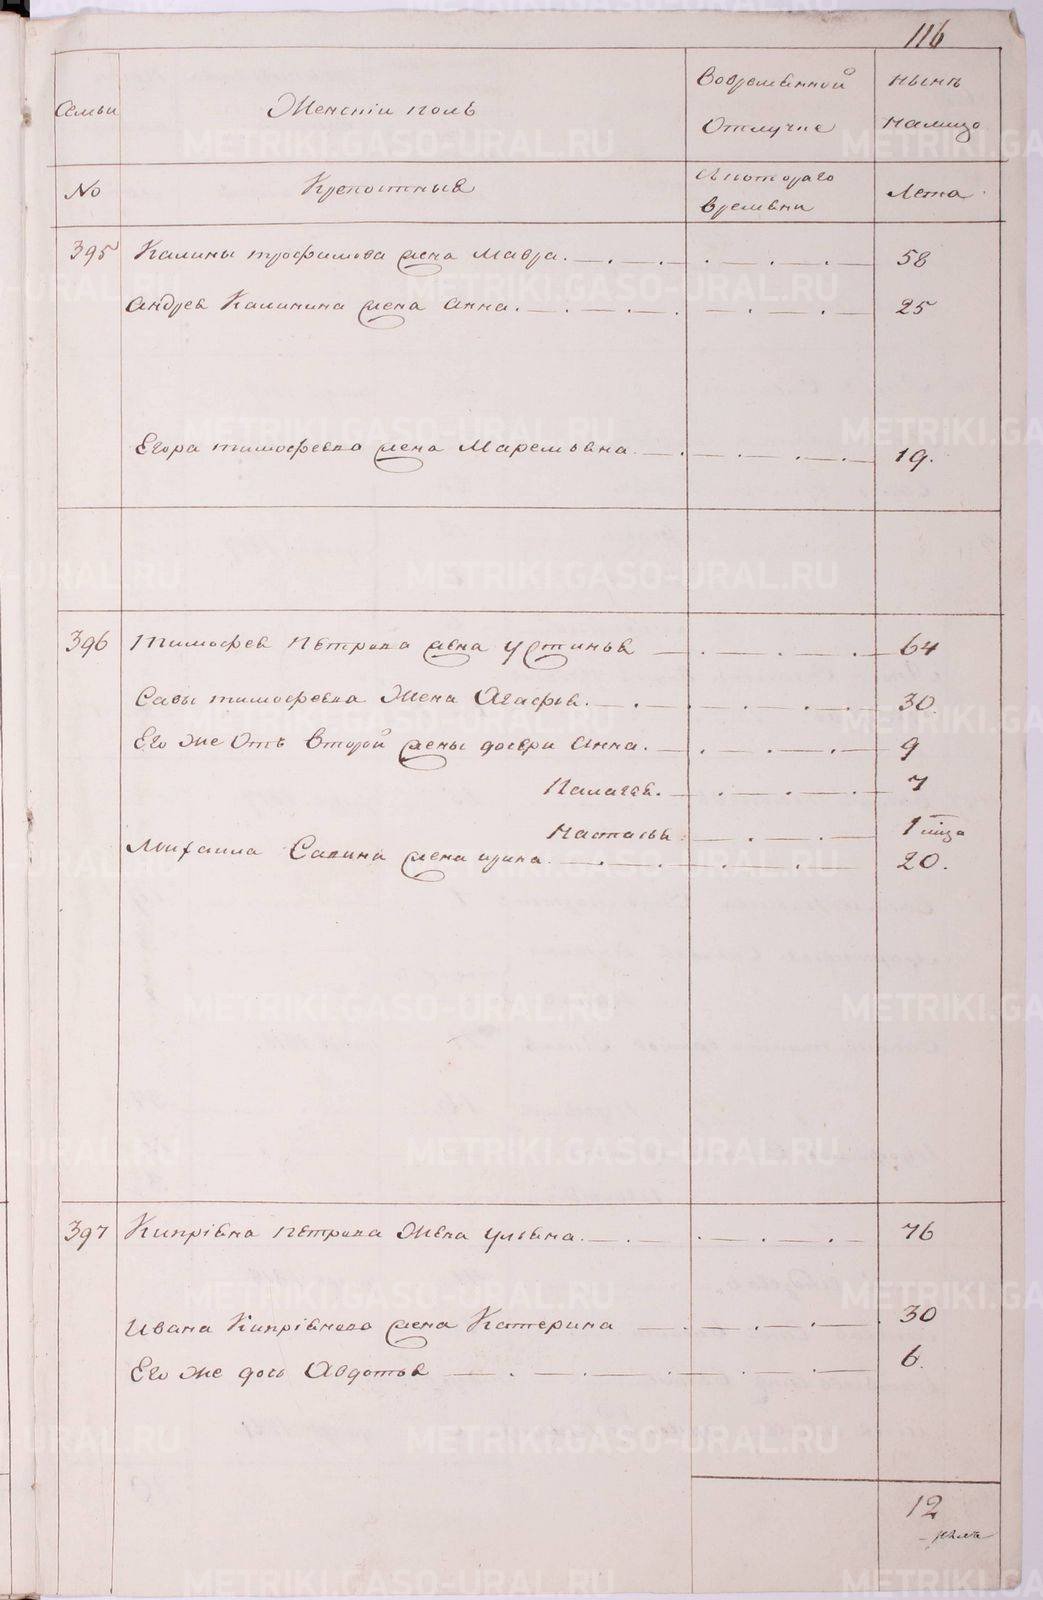 116
Семьи
Женскiи полъ
Вовременной
Отлучке
Нынѣ
налицо
No
Крепостные
Скотораго
времени
Лета
395 Калины трофимова жена Мавра. 58
Андрея Калинина жена Анна. 25
Егора тимофеева жена Маремьяна 19.
396 Тимофея Петрова жена Устинья 64
Савы тимофеева Жена Агафья. 30.
Его же Отъ второй жены дочери Анна. 9
Палагея. 7
Настасья 1 мца
Михаила Савина жена ирина. 20.
397 Кипрiяна петрова Жена ульяна. 76
Ивана Кипрiянова жена Катерина 30
Его же дочь Авдотья 6.
12
METRIKI.GASO-URAL.RU